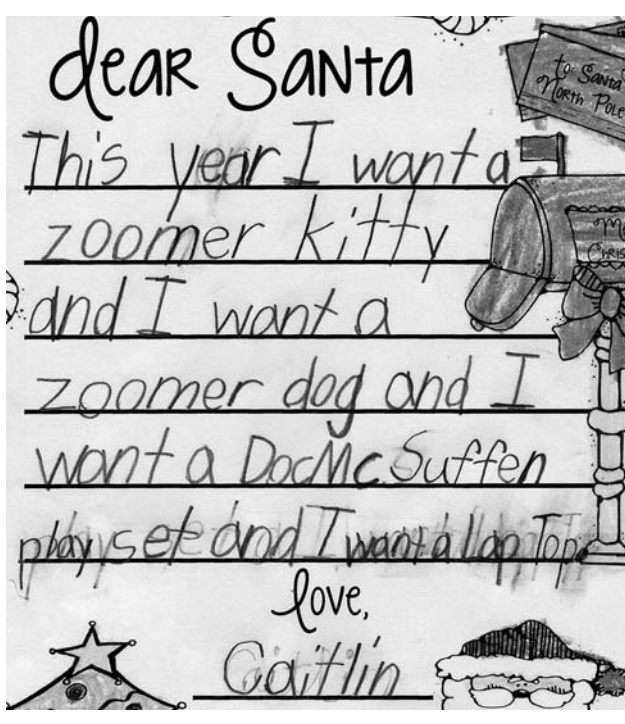 dear Santa
to: Santa
North Pole
This year I want a
zoomer kitty
and I want a
zoomer dog and I
want a DocMcSuffen
playset and I want a lap Top.
love,
Caitlin